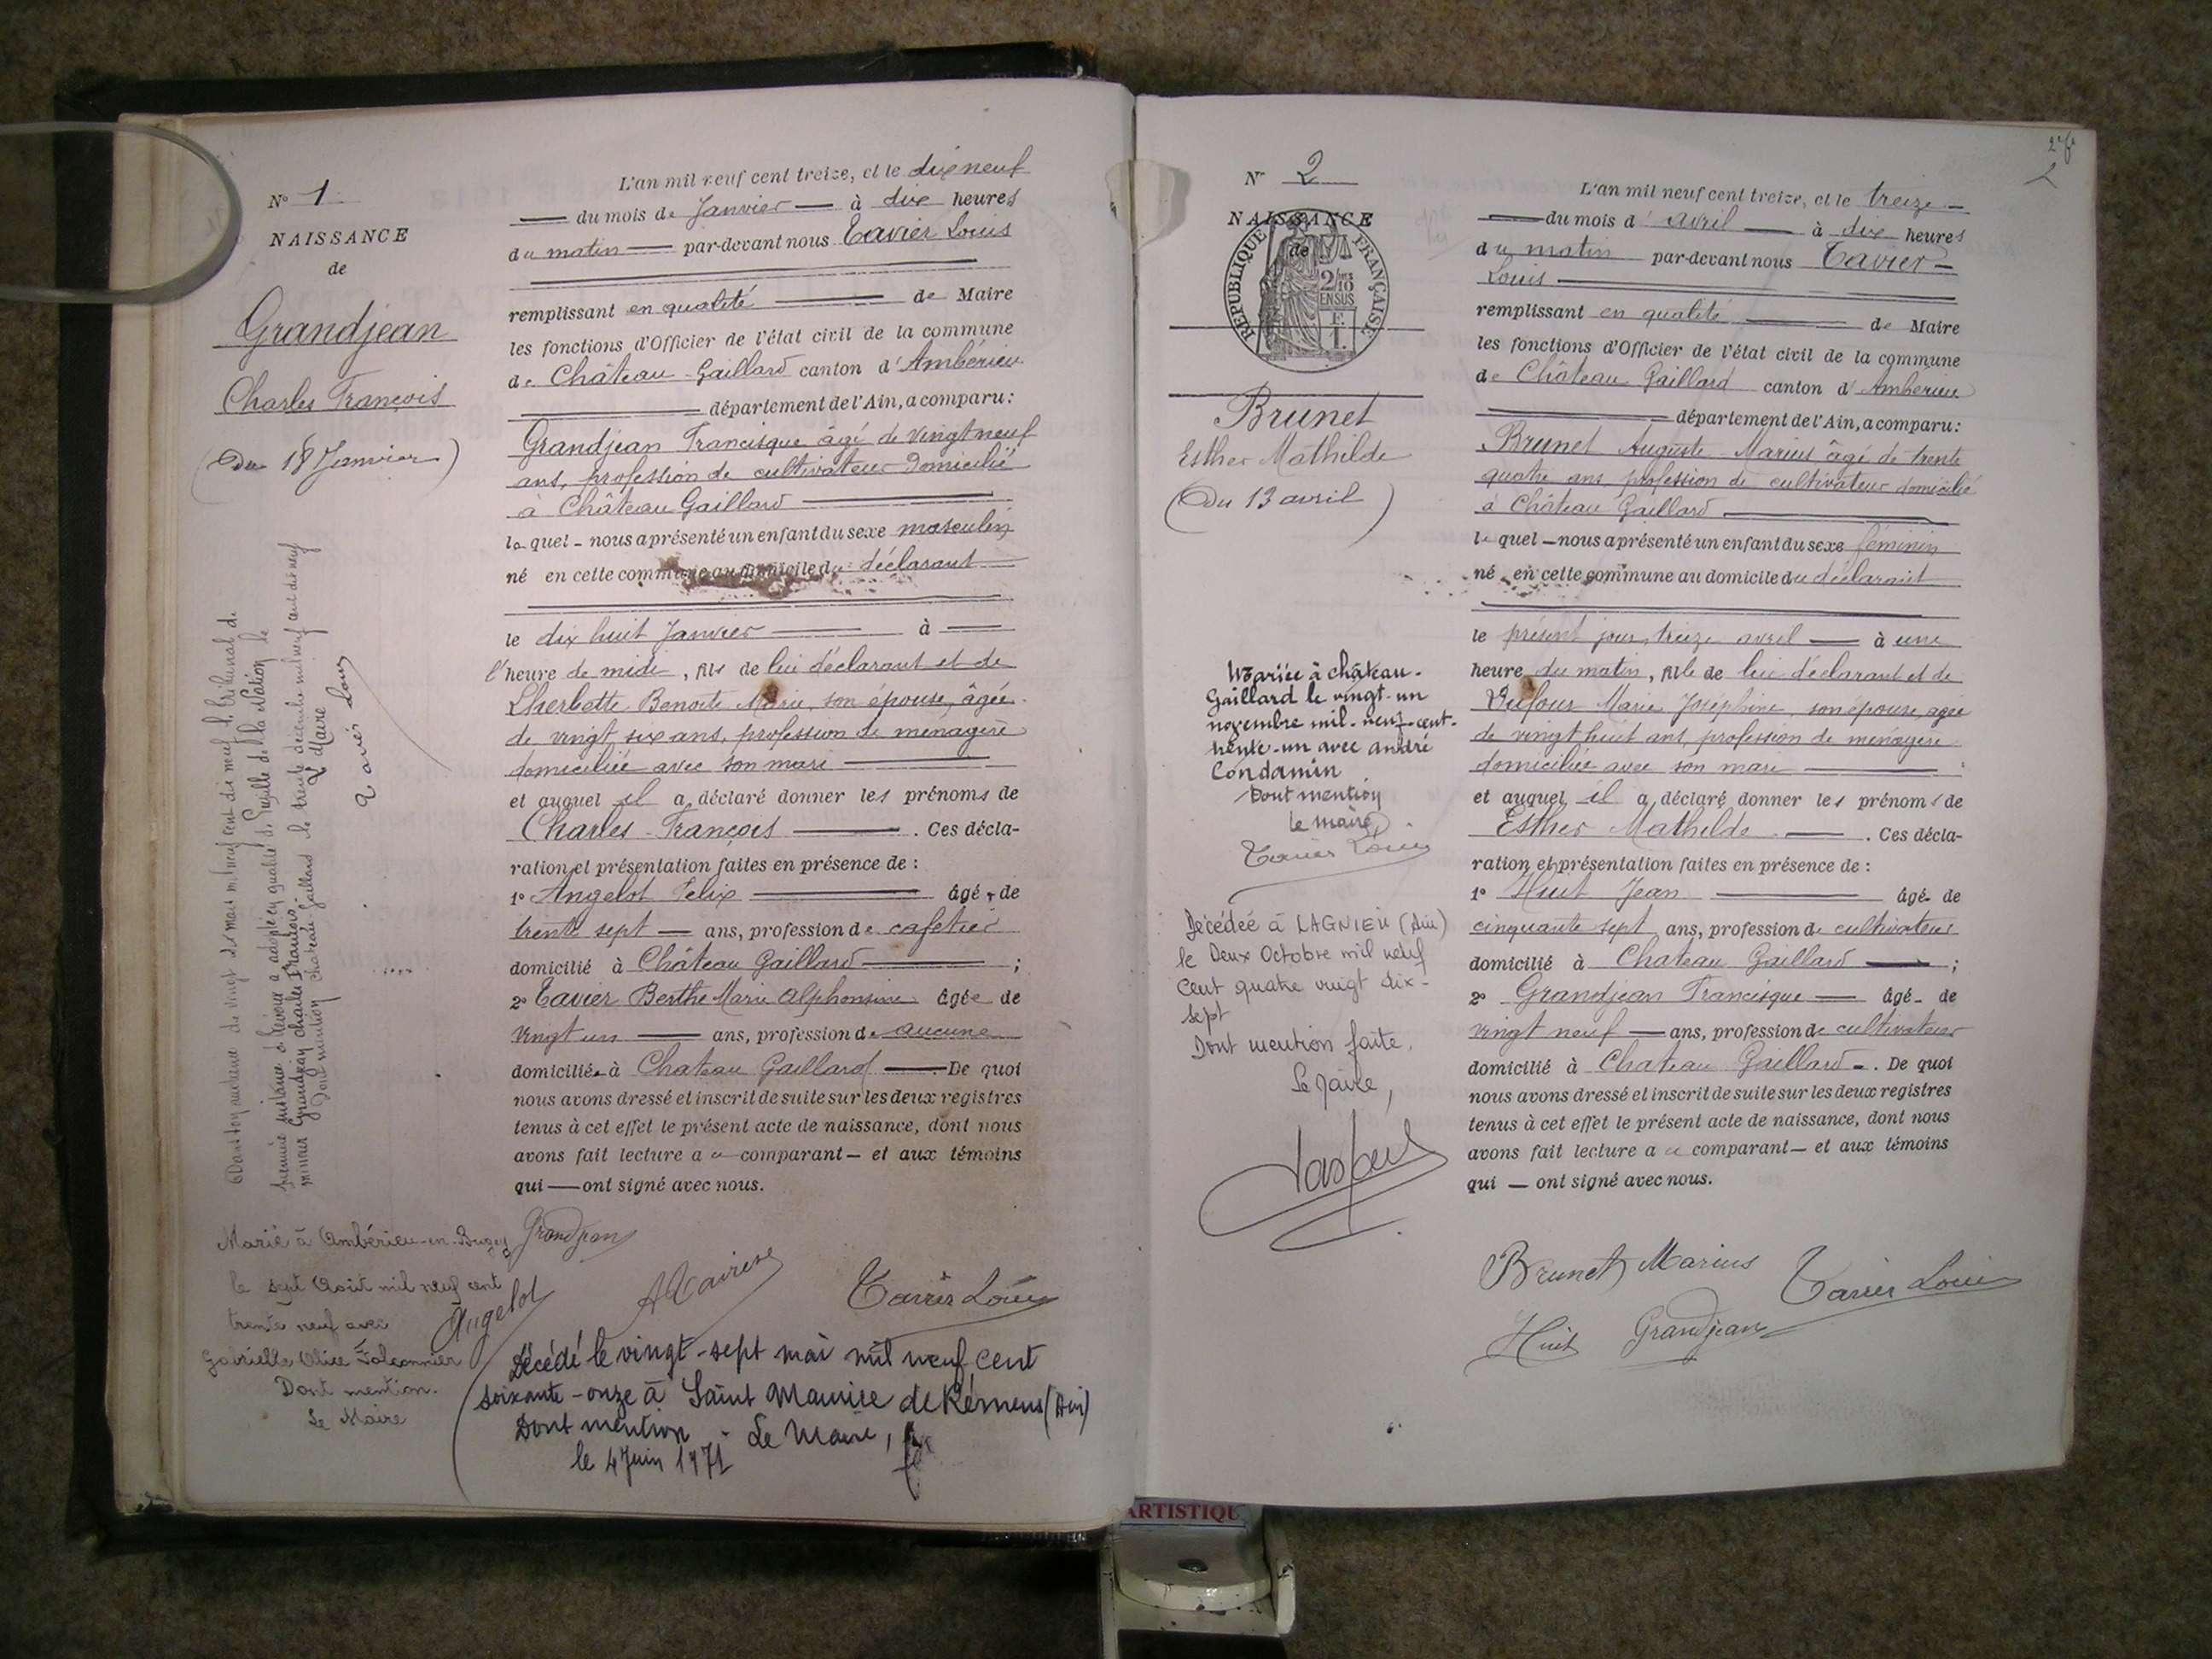 N° 1
NAISSANCE
de
Grandjean
Charles François
(Du 18 Janvier)
L'an mil neuf cent treize, et le dix neuf
du mois de Janvier à dix heures
du matin par-devant nous Tavier Louis
remplissant en qualité de Maire
les fonctions d'Officier de l'état civil de la commune
de Château-Gaillard canton d'Ambérieu
département de l'Ain, a comparu:
Grandjean Francisque âgé de vingt neuf
ans, profession de cultivateur domicilié
à Château Gaillard
lequel nous a présenté un enfant du sexe masculin
né en cette commune au domicile du déclarant
le dix huit Janvier à
l'heure de midi, fils de lui déclarant et de
Lherbette Benoite Marie, son épouse, âgée
de vingt six ans, profession de ménagère
domiciliée avec son mari
et auquel il a déclaré donner les prénoms de
Charles-François. Ces décla-
ration et présentation faites en présence de :
1° Angelot Felix âgé de
trente sept ans, profession de cafetier
domicilié à Château Gaillard ;
2° Tavier Berthe Marie Alphonsine âgée de
vingt un ans, profession de aucune
domiciliée à Chateau Gaillard. De quoi
nous avons dressé et inscrit de suite sur les deux registres
tenus à cet effet le présent acte de naissance, dont nous
avons fait lecture au comparant et aux témoins
qui ont signé avec nous.
Grandjean
Angelot
Tavier Louis
jugement de vingt de mars mil neuf cent dix neuf le tribunal de
première instance a adopté en qualité de Pupille de la Nation le
mineur Grandjean Charles François.
Dont mention Chateau Gaillard le trente décembre mil neuf cent dix neuf
Le Maire
Tavier Louis
Marié à Ambérieu-en-Bugey
le sept Août mil neuf cent
trente neuf avec
Gabrielle Alice Falconnier
Dont mention.
Le Maire
Décédé le vingt-sept mai mil neuf cent
soixante-onze à Saint Maurice de Rémens (Ain)
Dont mention. Le Maire,
le 4 Juin 1971
2
N° 2
NAISSANCE
de
REPUBLIQUE FRANÇAISE
2/10
EN SUS
Brunet
Esther Mathilde
(Du 13 avril)
Mariée à château-
Gaillard le vingt-un
novembre mil-neuf-cent-
trente-un avec André
Condamin
Dont mention
le maire
Tavier Louis
Décédée à LAGNIEU (Ain)
le Deux Octobre mil neuf
cent quatre vingt dix-
sept
Dont mention faite.
Le Maire,
L'an mil neuf cent treize, et le treize
du mois d'avril à dix heures
du matin par-devant nous Tavier
Louis
remplissant en qualité de Maire
les fonctions d'Officier de l'état civil de la commune
de Château Gaillard canton d'Ambérieu
département de l'Ain, a comparu:
Brunet Auguste Marius âgé de trente
quatre ans profession de cultivateur domicilié
à Château Gaillard
lequel nous a présenté un enfant du sexe féminin
né en cette commune au domicile du déclarant
le présent jour, treize avril à une
heure du matin, fille de lui déclarant et de
Dufour Marie Joséphine son épouse, agée
de vingt huit ans, profession de ménagère
domiciliée avec son mari
et auquel il a déclaré donner les prénoms de
Esther Mathilde. Ces décla-
ration et présentation faites en présence de :
1° Huit Jean âgé de
cinquante sept ans, profession de cultivateur
domicilié à Chateau Gaillard ;
2° Grandjean Francisque âgé de
vingt neuf ans, profession de cultivateur
domicilié à Chateau Gaillard. De quoi
nous avons dressé et inscrit de suite sur les deux registres
tenus à cet effet le présent acte de naissance, dont nous
avons fait lecture au comparant et aux témoins
qui ont signé avec nous.
Brunet Marius
Tavier Louis
Huit
Grandjean
ARTISTIQU